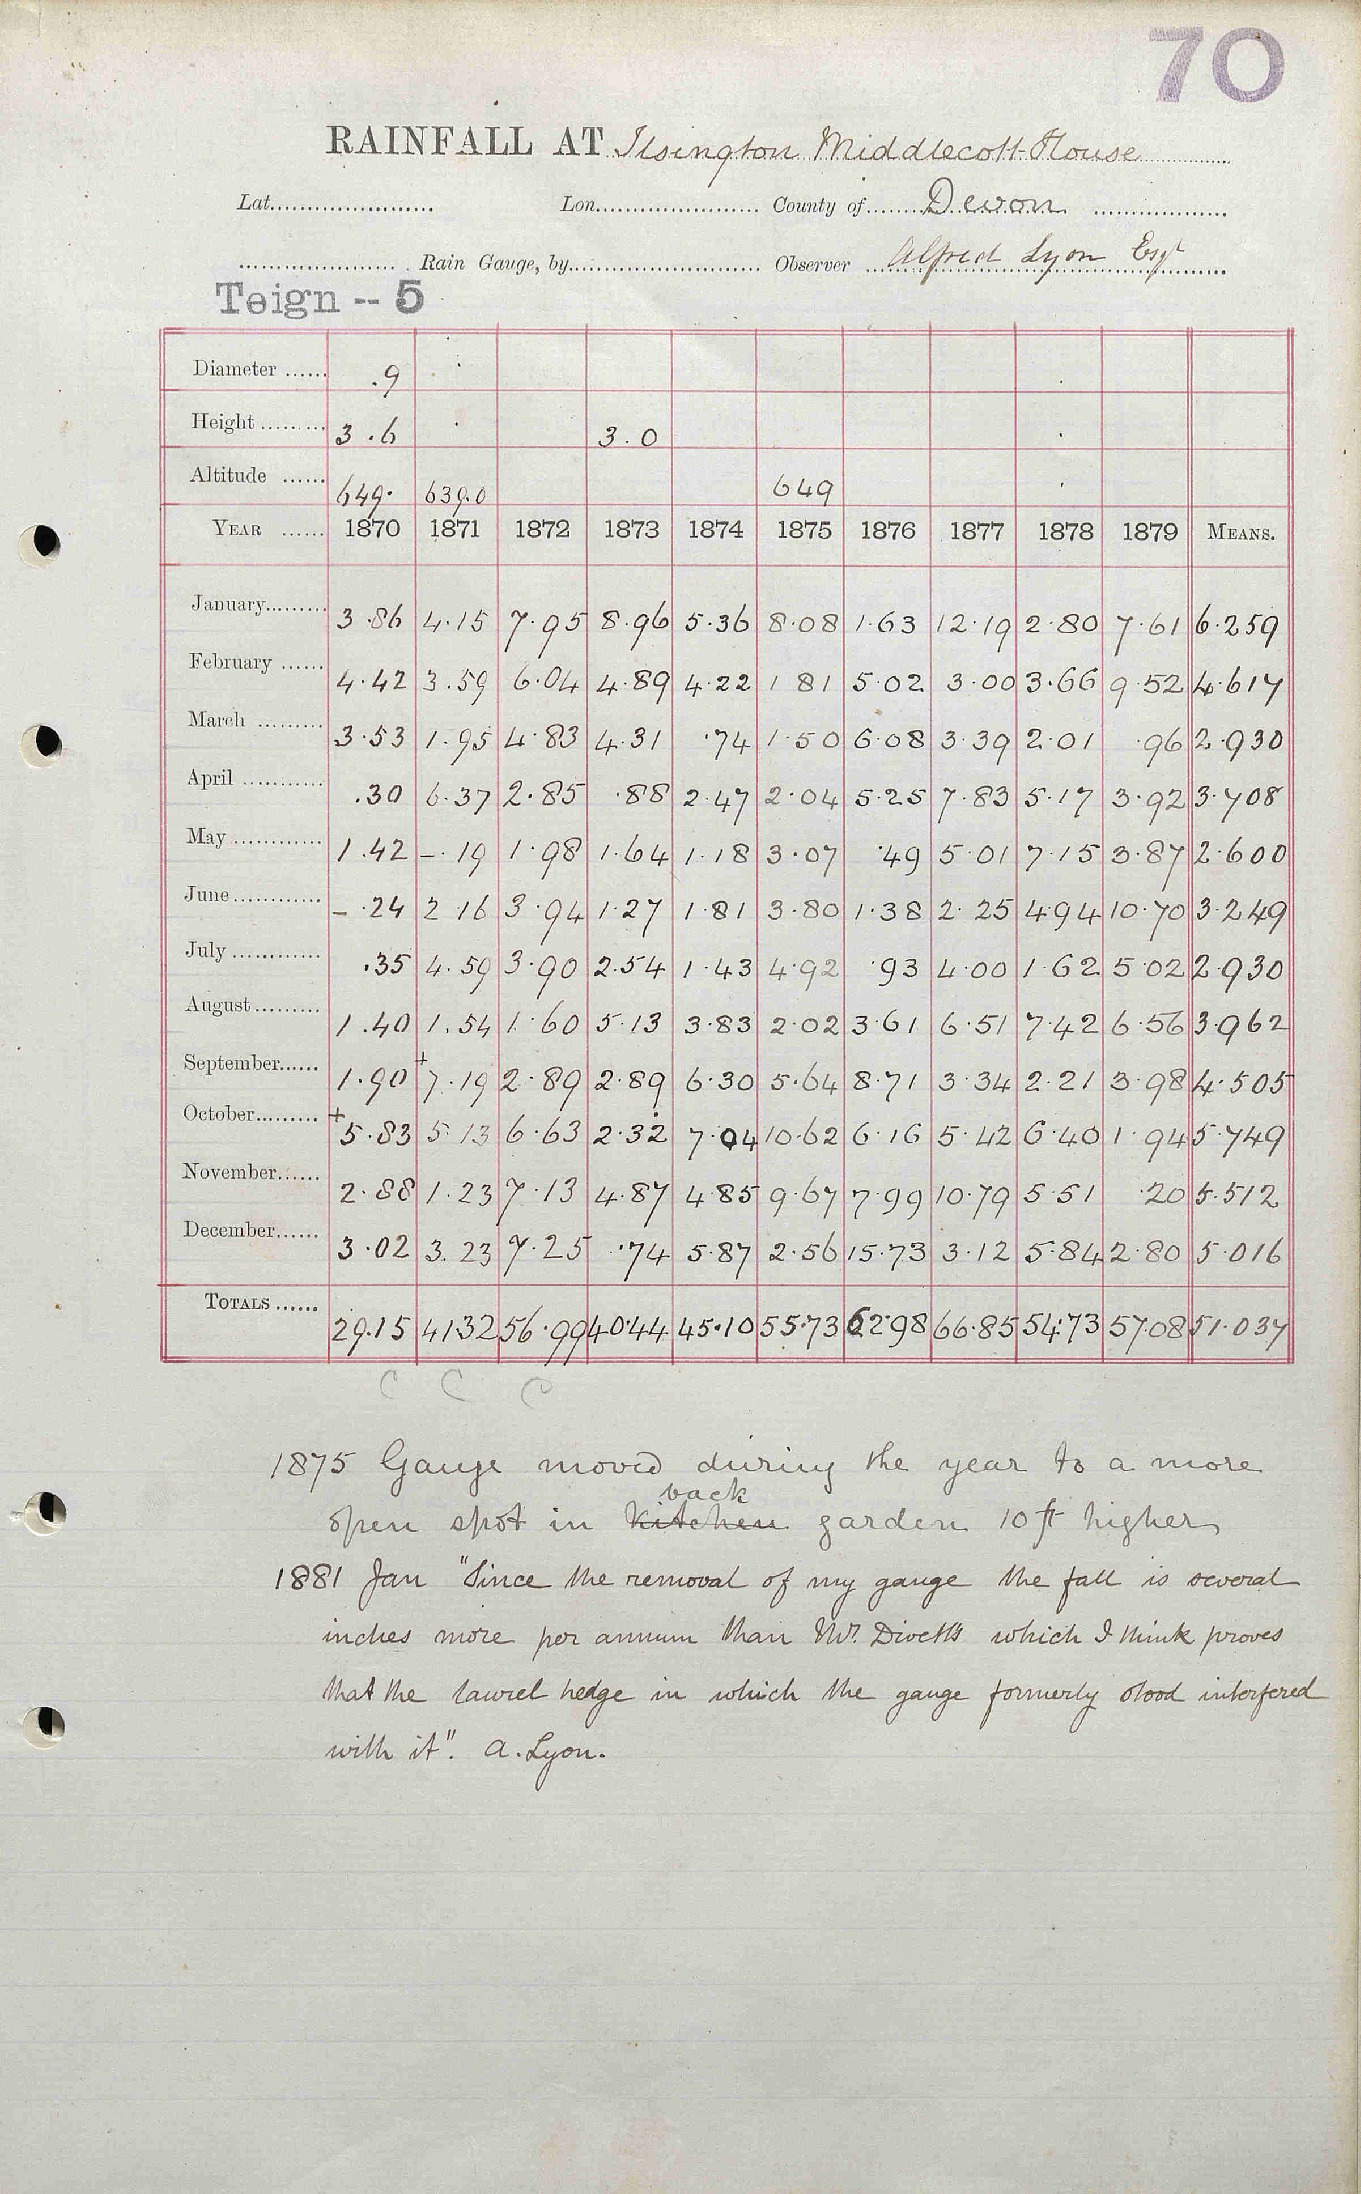 70
RAINFALL AT Ilsington Middlecott House
Lat. Lon. County of Devon
Rain Gauge, by Observer Alfred Lyon Esqr
Teign -- 5
Diameter .9
Height 3.6 3.0
Altitude 649. 639.0 649
YEAR 1870 1871 1872 1873 1874 1875 1876 1877 1878 1879 MEANS.
January 3.86 4.15 7.95 8.96 5.36 8.08 1.63 12.19 2.80 7.61 6.259
February 4.42 3.59 6.04 4.89 4.22 1 81 5.02 3.00 3.66 9.52 4.617
March 3.53 1.95 4.83 4.31 .74 1.50 6.08 3.39 2.01 .96 2.930
April .30 6.37 2.85 .88 2.47 2.04 5.25 7.83 5.17 3.92 3.708
May 1.42 -.19 1.98 1.64 1.18 3.07 .49 5.01 7.15 3.87 2.600
June -.24 2 16 3.94 1.27 1.81 3.80 1.38 2.25 4.94 10.70 3.249
July .35 4.59 3.90 2.54 1.43 4.92 .93 4.00 1.62 5.02 2.930
August 1.40 1.54 1.60 5.13 3.83 2.02 3.61 6.51 7.42 6.56 3.962
September 1.90 +7.19 2.89 2.89 6.30 5.64 8.71 3.34 2.21 3.98 4.505
October +5.83 5.13 6.63 2.32 7.04 10.62 6.16 5.42 6.40 1.94 5.749
November 2.88 1.23 7.13 4.87 4.85 9.67 7.99 10.79 5.51 .20 5.512
December 3.02 3.23 7.25 .74 5.87 2.56 15.73 3.12 5.84 2.80 5.016
TOTALS 29.15 41.32 56.99 40.44 45.10 55.73 62.98 66.85 54.73 57.08 51.037
C C C
1875 Gauge moved during the year to a more
back
open spot in kitchen garden 10 ft higher
1881 Jan "Since the removal of my gauge the fall is several
inches more per annum than Mr. Divett's which I think proves
that the laurel hedge in which the gauge formerly stood interfered
with it". A. Lyon.